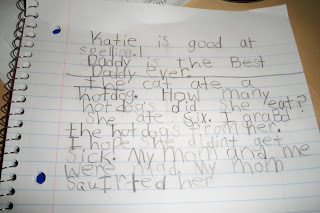 Katie is good at
speling.!
Daddy is the Best
Daddy ever.
The cat ate a
hotdog. How many
hotdogs did she eat?
She ate six. I grabd
the hotdogs from her.
I hope she didint get
sick. My mom and me
were mad. My mom
saufrted her.